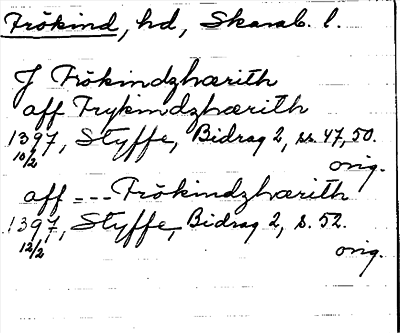 Frökind, hd, Skarab. l.
J Frökindzhærith
aff Frykindzhærith
1397, Styffe, Bidrag 2, ss. 47, 50.
10/2 orig.
aff --- Frökindzhærith
1397, Styffe, Bidrag 2, s. 52.
12/2 orig.